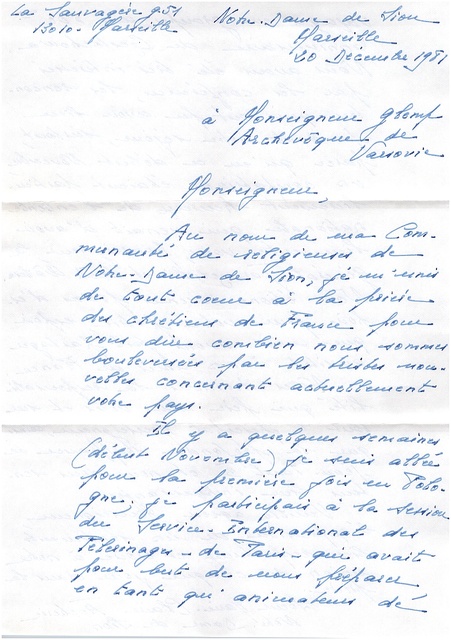 La Sauvagère 951
13010 - Marseille
Notre-Dame de Sion
Marseille
20 Décembre 1981
à Monseigneur Glemp
Archevêque de
Varsovie
Monseigneur,
Au nom de ma Com-
munauté de religieuses de
Notre-Dame de Sion, je m'unis
de tout coeur à la prière
des chrétiens de France pour
vous dire combien nous sommes
bouleversées par les tristes nou-
velles concernant actuellement
votre pays.
Il y a quelques semaines
(début Novembre) je suis allée
pour la première fois en Polo-
gne; je participais à la session
du Service-International des
Pèlerinages - de Paris - qui avait
pour but de nous préparer
en tant qu'animateurs de